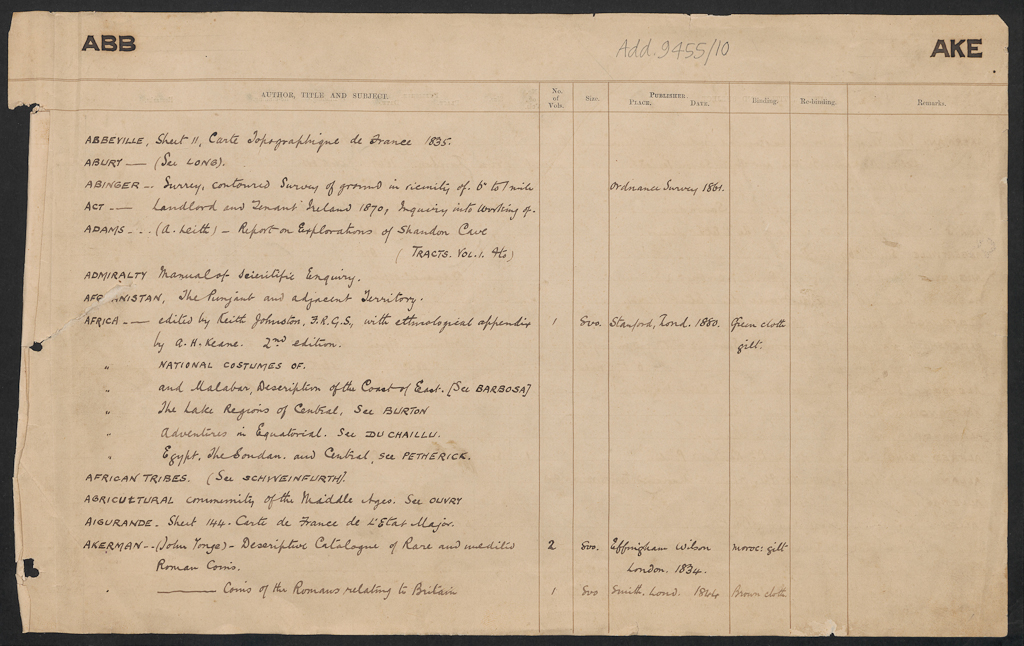 ABB Add. 9455/10 AKE
AUTHOR, TITLE AND SUBJECT. No. of Vols. Size. PUBLISHER. PLACE. DATE. Binding. Re-binding. Remarks.
ABBEVILLE, Sheet 11, Carte Topographique de France 1835.
ABURY — (See LONG).
ABINGER -- Surrey, contoured Survey of ground in vicinity of. 6" to 1 mile Ordnance Survey 1861.
ACT -- Landlord and Tenant Ireland 1870, Inquiry into working of.
ADAMS - .. (A. Leith) - Report on Explorations of Shandon Cave
(TRACTS. VOL. 1. 4to)
ADMIRALTY Manual of Scientific Enquiry.
AFGHANISTAN, The Punjaut and adjacent Territory.
AFRICA — edited by Keith Johnston, F.R.G.S., with ethnological appendix 1 8vo. Stanford, Lond. 1880. Green cloth
by A. H. Keane. 2nd edition. gilt.
" NATIONAL COSTUMES OF.
" and Malabar, Description of the Coast of East. [See BARBOSA]
" The Lake Regions of Central, See BURTON
" Adventures in Equatorial. See DU CHAILLU.
" Egypt, The Soudan. and Central, see PETHERICK.
AFRICAN TRIBES. (See SCHWEINFURTH].
AGRICULTURAL community of the Middle Ages. See OUVRY
AIGURANDE. Sheet 144. Carte de France de L'Etat Major.
AKERMAN -- (John Yonge) - Descriptive Catalogue of Rare and unedited 2 8vo. Effingham Wilson moroc: gilt
Roman Coins. London. 1834.
" — Coins of the Romans relating to Britain 1 8vo Smith. Lond. 1844 Brown cloth